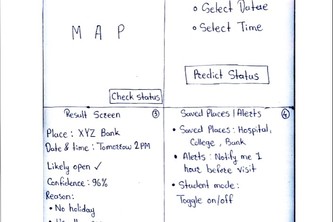 MAP
Check Status
• Select Datae
• Select Time
Predict Status
Result Screen ③
Place : XYZ Bank
Date & time : Tomorrow 2PM
Likely open ✓
Confidence : 96%
Reason :
• No holiday
Saved Places / Alerts ④
• Saved Places : Hospital,
College , Bank
• Alerts : Notify me 1
hour before visit
• Student mode :
Toggle on/off